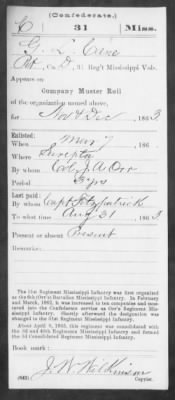 (Confederate.)
C 31 Miss.
G. L. Cane
Pvt, Co. D, 31 Reg't Mississippi Vols.
Appears on
Company Muster Roll
of the organization named above,
for Nov & Dec, 1863
Enlisted:
When May 7, 186
Where Surepta
By whom Col. J. A. Orr
Period 3 yrs
Last paid:
By whom Capt. Fitzpatrick
To what time Aug 31, 1863
Present or absent Present
Remarks:
The 31st Regiment Mississippi Infantry was first organized
as the 6th (Orr's) Battalion Mississippi Infantry. In February
and March, 1862, it was increased to ten companies and mus-
tered into the Confederate service as Orr's Regiment Mis-
sissippi Infantry. Shortly afterward the designation was
changed to the 31st Regiment Mississippi Infantry.
About April 9, 1865, this regiment was consolidated with
the 3d and 40th Regiments Mississippi Infantry and formed
the 3d Consolidated Regiment Mississippi Infantry.
Book mark:
J. W. Wilkinson
Copyist.